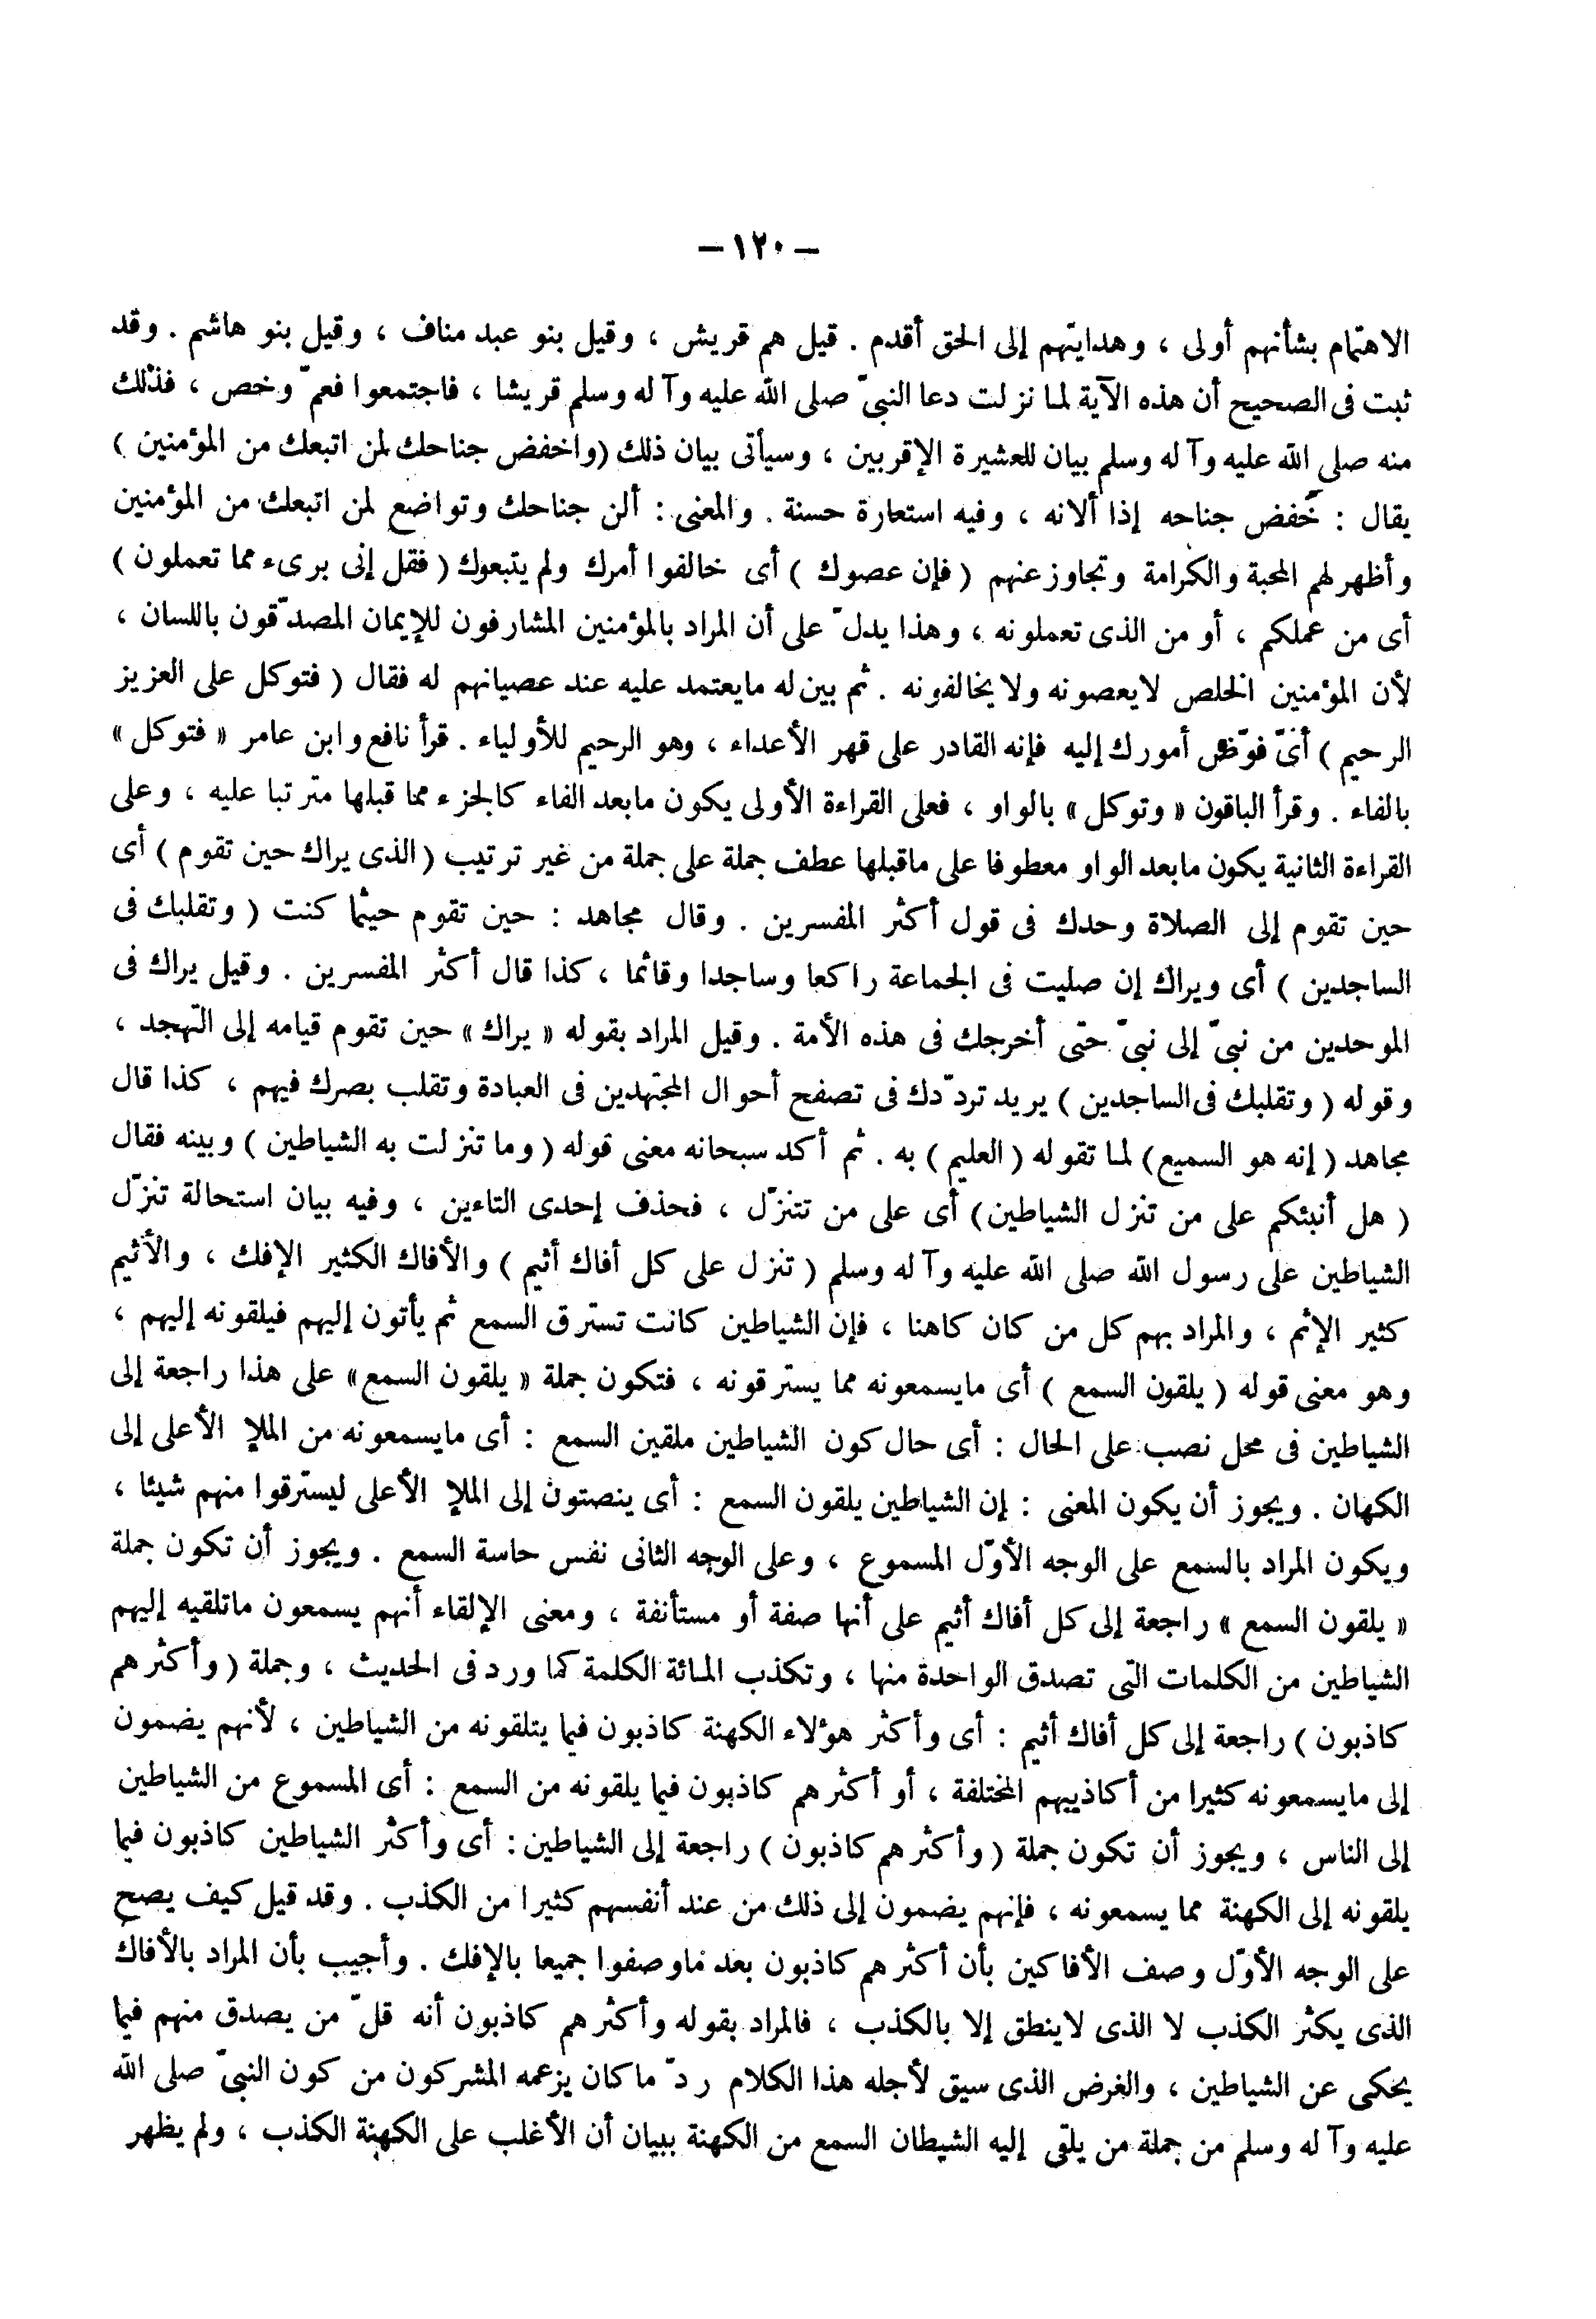 — ١٢٠ —
الاهتمام بشأنهم أولى ، وهدايتهم إلى الحق أقدم . قيل هم قريش ، وقيل بنو عبد مناف ، وقيل بنو هاشم . وقد
ثبت فى الصحيح أن هذه الآية لما نزلت دعا النبىّ صلى الله عليه وآله وسلم قريشا ، فاجتمعوا فعمّ وخص ، فذلك
منه صلى الله عليه وآله وسلم بيان للعشيرة الإقربين ، وسيأتى بيان ذلك (واخفض جناحك لمن اتبعك من المؤمنين )
يقال : خفض جناحه إذا ألانه ، وفيه استعارة حسنة . والمعنى : ألن جناحك وتواضع لمن اتبعك من المؤمنين
وأظهر لهم المحبة والكرامة وتجاوز عنهم ( فإن عصوك ) أى خالفوا أمرك ولم يتبعوك ( فقل إنى برىء مما تعملون )
أى من عملكم ، أو من الذى تعملونه ، وهذا يدلّ على أن المراد بالمؤمنين المشارفون للإيمان المصدّقون باللسان ،
لأن المؤمنين الخلص لايعصونه ولا يخالفونه . ثم بين له مايعتمد عليه عند عصيانهم له فقال ( فتوكل على العزيز
الرحيم ) أى فوّض أمورك إليه فإنه القادر على قهر الأعداء ، وهو الرحيم للأولياء . قرأ نافع وابن عامر « فتوكل »
بالفاء . وقرأ الباقون « وتوكل » بالواو ، فعلى القراءة الأولى يكون مابعد الفاء كالجزء مما قبلها مترتبا عليه ، وعلى
القراءة الثانية يكون مابعد الواو معطوفا على ماقبلها عطف جملة على جملة من غير ترتيب ( الذى يراك حين تقوم ) أى
حين تقوم إلى الصلاة وحدك فى قول أكثر المفسرين . وقال مجاهد : حين تقوم حيثما كنت ( وتقلبك فى
الساجدين ) أى ويراك إن صليت فى الجماعة راكعا وساجدا وقائما ، كذا قال أكثر المفسرين . وقيل يراك فى
الموحدين من نبىّ إلى نبىّ حتى أخرجك فى هذه الأمة . وقيل المراد بقوله « يراك » حين تقوم قيامه إلى التهجد ،
وقوله ( وتقلبك فى الساجدين ) يريد تردّدك فى تصفح أحوال المجتهدين فى العبادة وتقلب بصرك فيهم ، كذا قال
مجاهد ( إنه هو السميع ) لما تقوله ( العليم ) به . ثم أكد سبحانه معنى قوله ( وما تنزلت به الشياطين ) وبينه فقال
( هل أنبئكم على من تنزل الشياطين) أى على من تتنزّل ، فحذف إحدى التاءين ، وفيه بيان استحالة تنزّل
الشياطين على رسول الله صلى الله عليه وآله وسلم ( تنزل على كل أفاك أثيم ) والأفاك الكثير الإفك ، والأثيم
كثير الإثم ، والمراد بهم كل من كان كاهنا ، فإن الشياطين كانت تسترق السمع ثم يأتون إليهم فيلقونه إليهم ،
وهو معنى قوله ( يلقون السمع ) أى مايسمعونه مما يسترقونه ، فتكون جملة « يلقون السمع» على هذا راجعة إلى
الشياطين فى محل نصب على الحال : أى حال كون الشياطين ملقين السمع : أى مايسمعونه من الملإ الأعلى إلى
الكهان . ويجوز أن يكون المعنى : إن الشياطين يلقون السمع : أى ينصتون إلى الملإ الأعلى ليسترقوا منهم شيئا ،
ويكون المراد بالسمع على الوجه الأوّل المسموع ، وعلى الوجه الثانى نفس حاسة السمع . ويجوز أن تكون جملة
« يلقون السمع » راجعة إلى كل أفاك أثيم على أنها صفة أو مستأنفة ، ومعنى الإلقاء أنهم يسمعون ماتلقيه إليهم
الشياطين من الكلمات التى تصدق الواحدة منها ، وتكذب المائة الكلمة كما ورد فى الحديث ، وجملة ( وأكثرهم
كاذبون ) راجعة إلى كل أفاك أثيم : أى وأكثر هؤلاء الكهنة كاذبون فيما يتلقونه من الشياطين ، لأنهم يضمون
إلى مايسمعونه كثيرا من أكاذيبهم المختلفة ، أو أكثرهم كاذبون فيما يلقونه من السمع : أى المسموع من الشياطين
إلى الناس ، ويجوز أن تكون جملة ( وأكثرهم كاذبون ) راجعة إلى الشياطين : أى وأكثر الشياطين كاذبون فيما
يلقونه إلى الكهنة مما يسمعونه ، فإنهم يضمون إلى ذلك من عند أنفسهم كثيرا من الكذب . وقد قيل كيف يصح
على الوجه الأوّل وصف الأفاكين بأن أكثرهم كاذبون بعد ماوصفوا جميعا بالإفك . وأجيب بأن المراد بالأفاك
الذى يكثر الكذب لا الذى لاينطق إلا بالكذب ، فالمراد بقوله وأكثرهم كاذبون أنه قلّ من يصدق منهم فيما
يحكى عن الشياطين ، والغرض الذى سيق لأجله هذا الكلام ردّ ماكان يزعمه المشركون من كون النبىّ صلى الله
عليه وآله وسلم من جملة من يلقى إليه الشيطان السمع من الكهنة ببيان أن الأغلب على الكهنة الكذب ، ولم يظهر